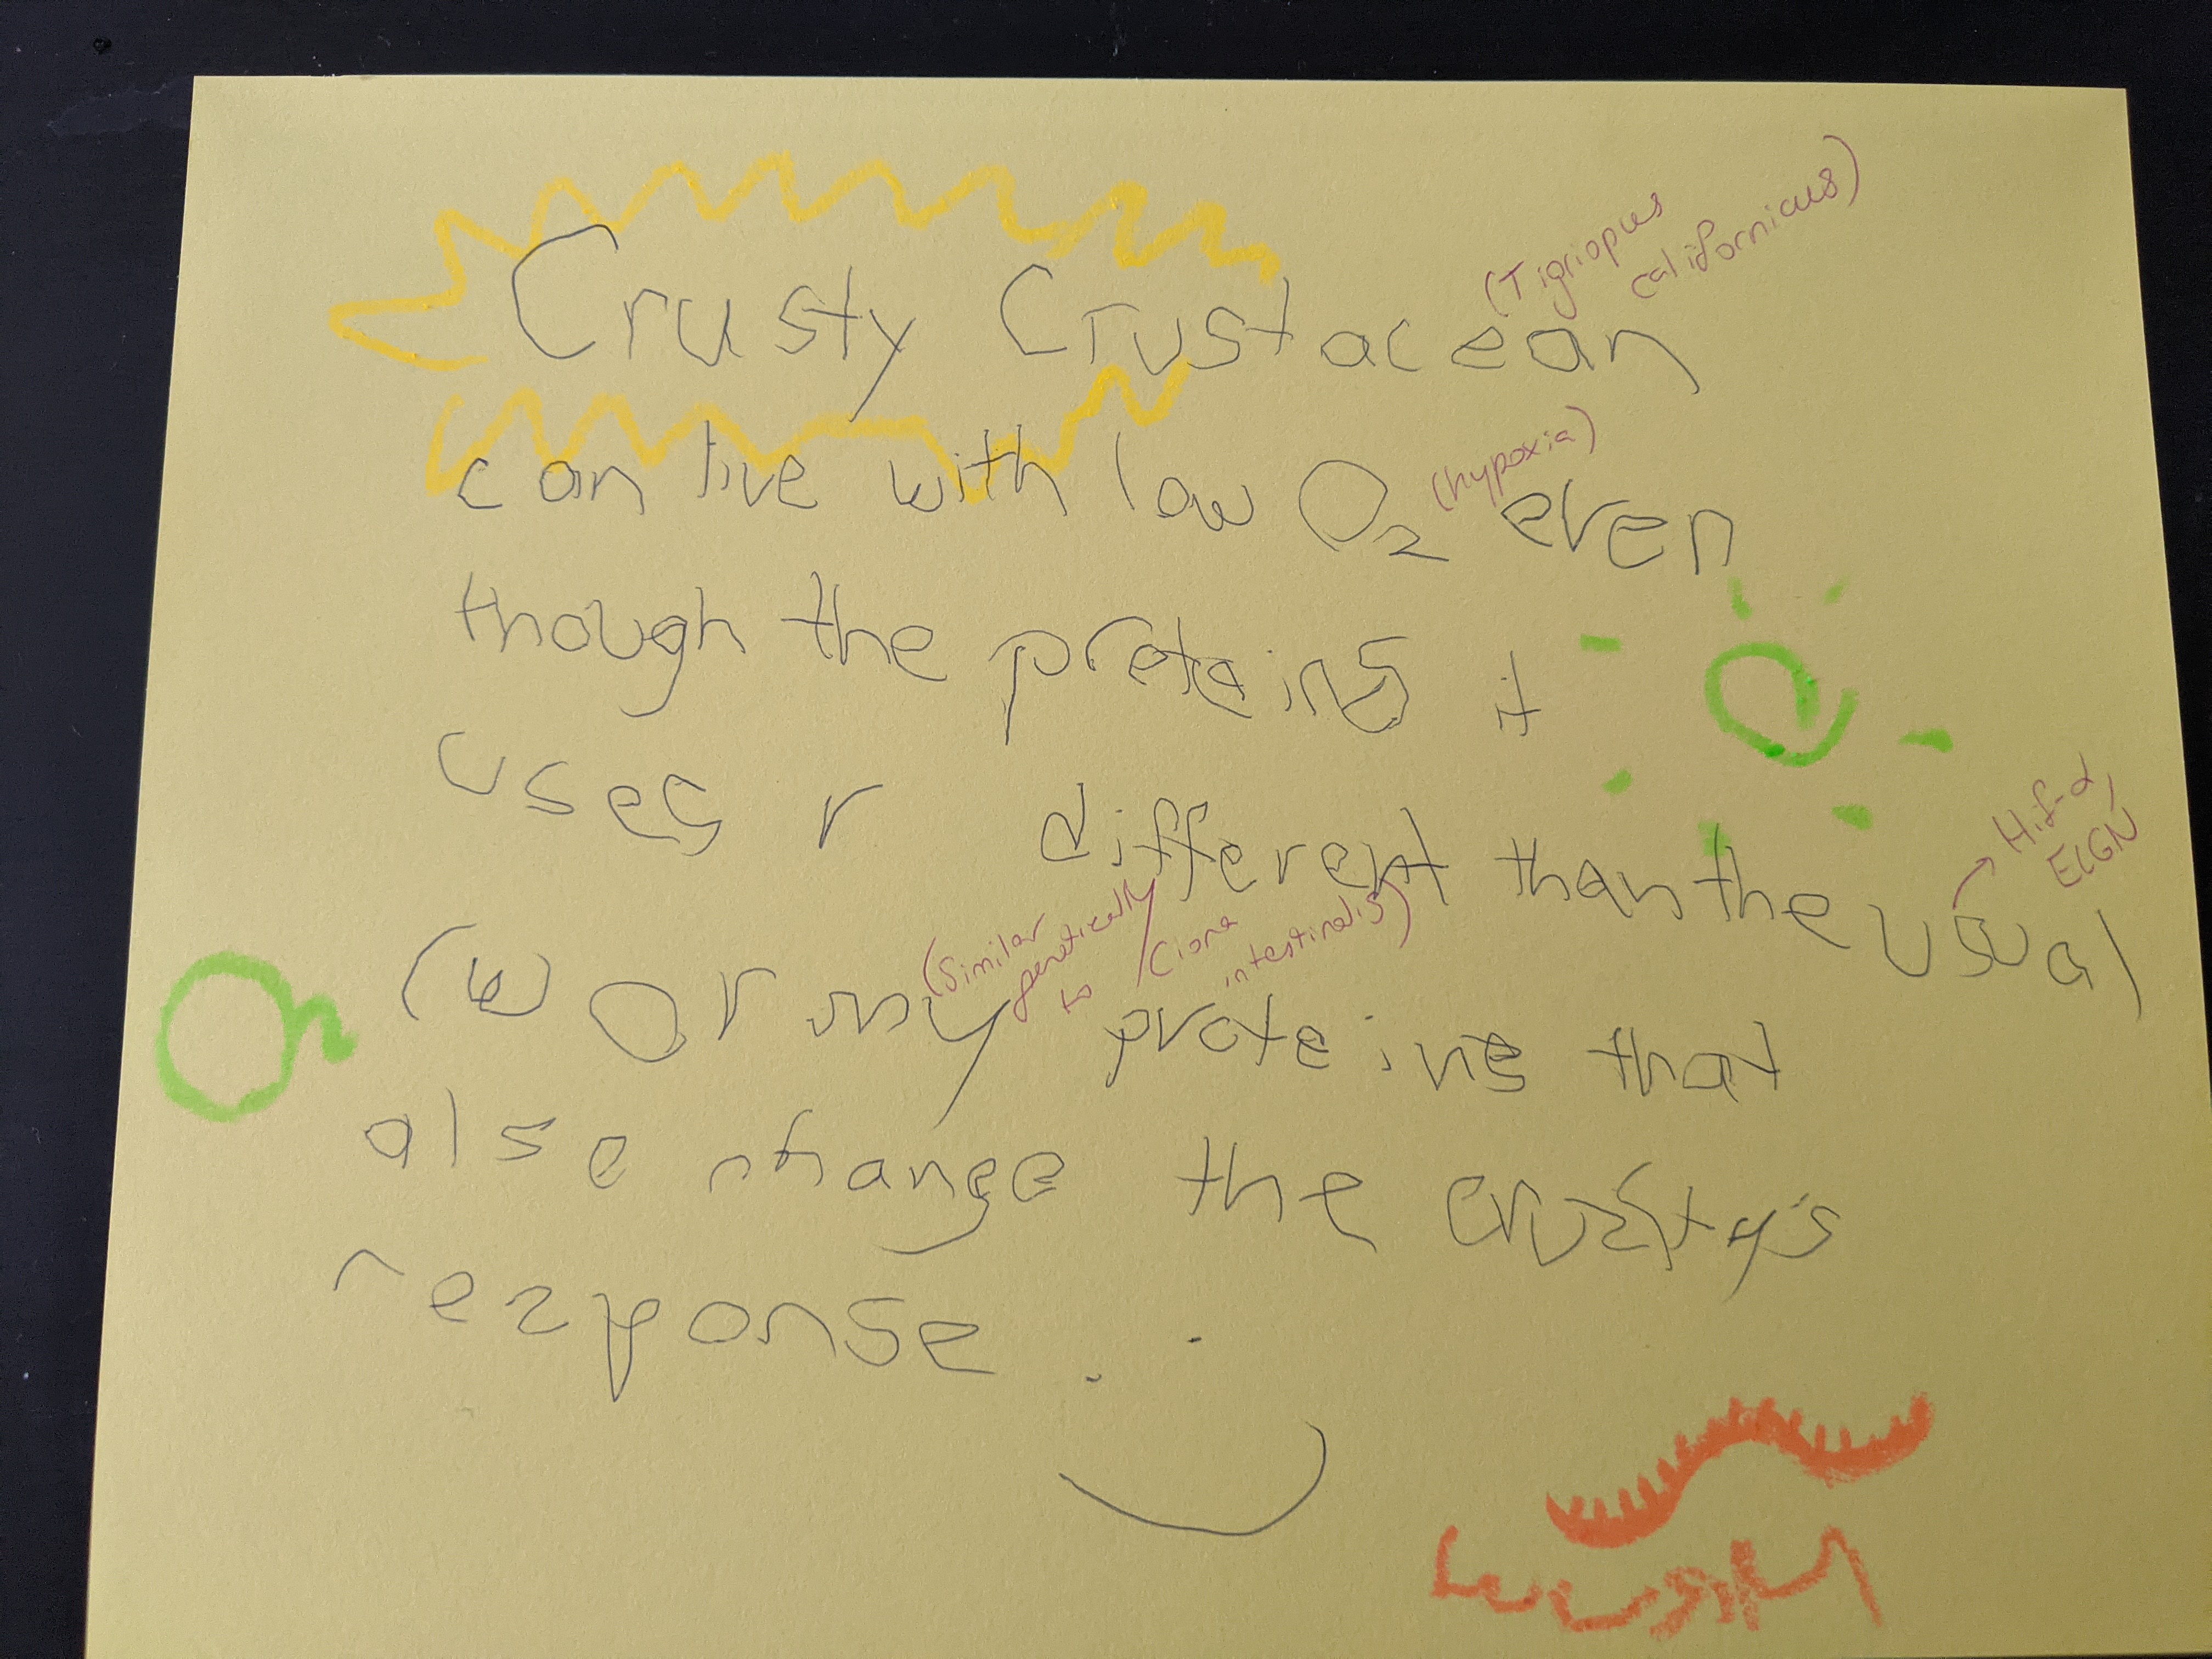 Crusty Crustacean (Tigriopus californicus)
can live with low O₂ (hypoxia) even
though the proteins it
uses r different than the usual → Hif-α/
EIGN
(similar genetically to (Ciona intestinalis)
proteins that
also change the crusty's
response :)